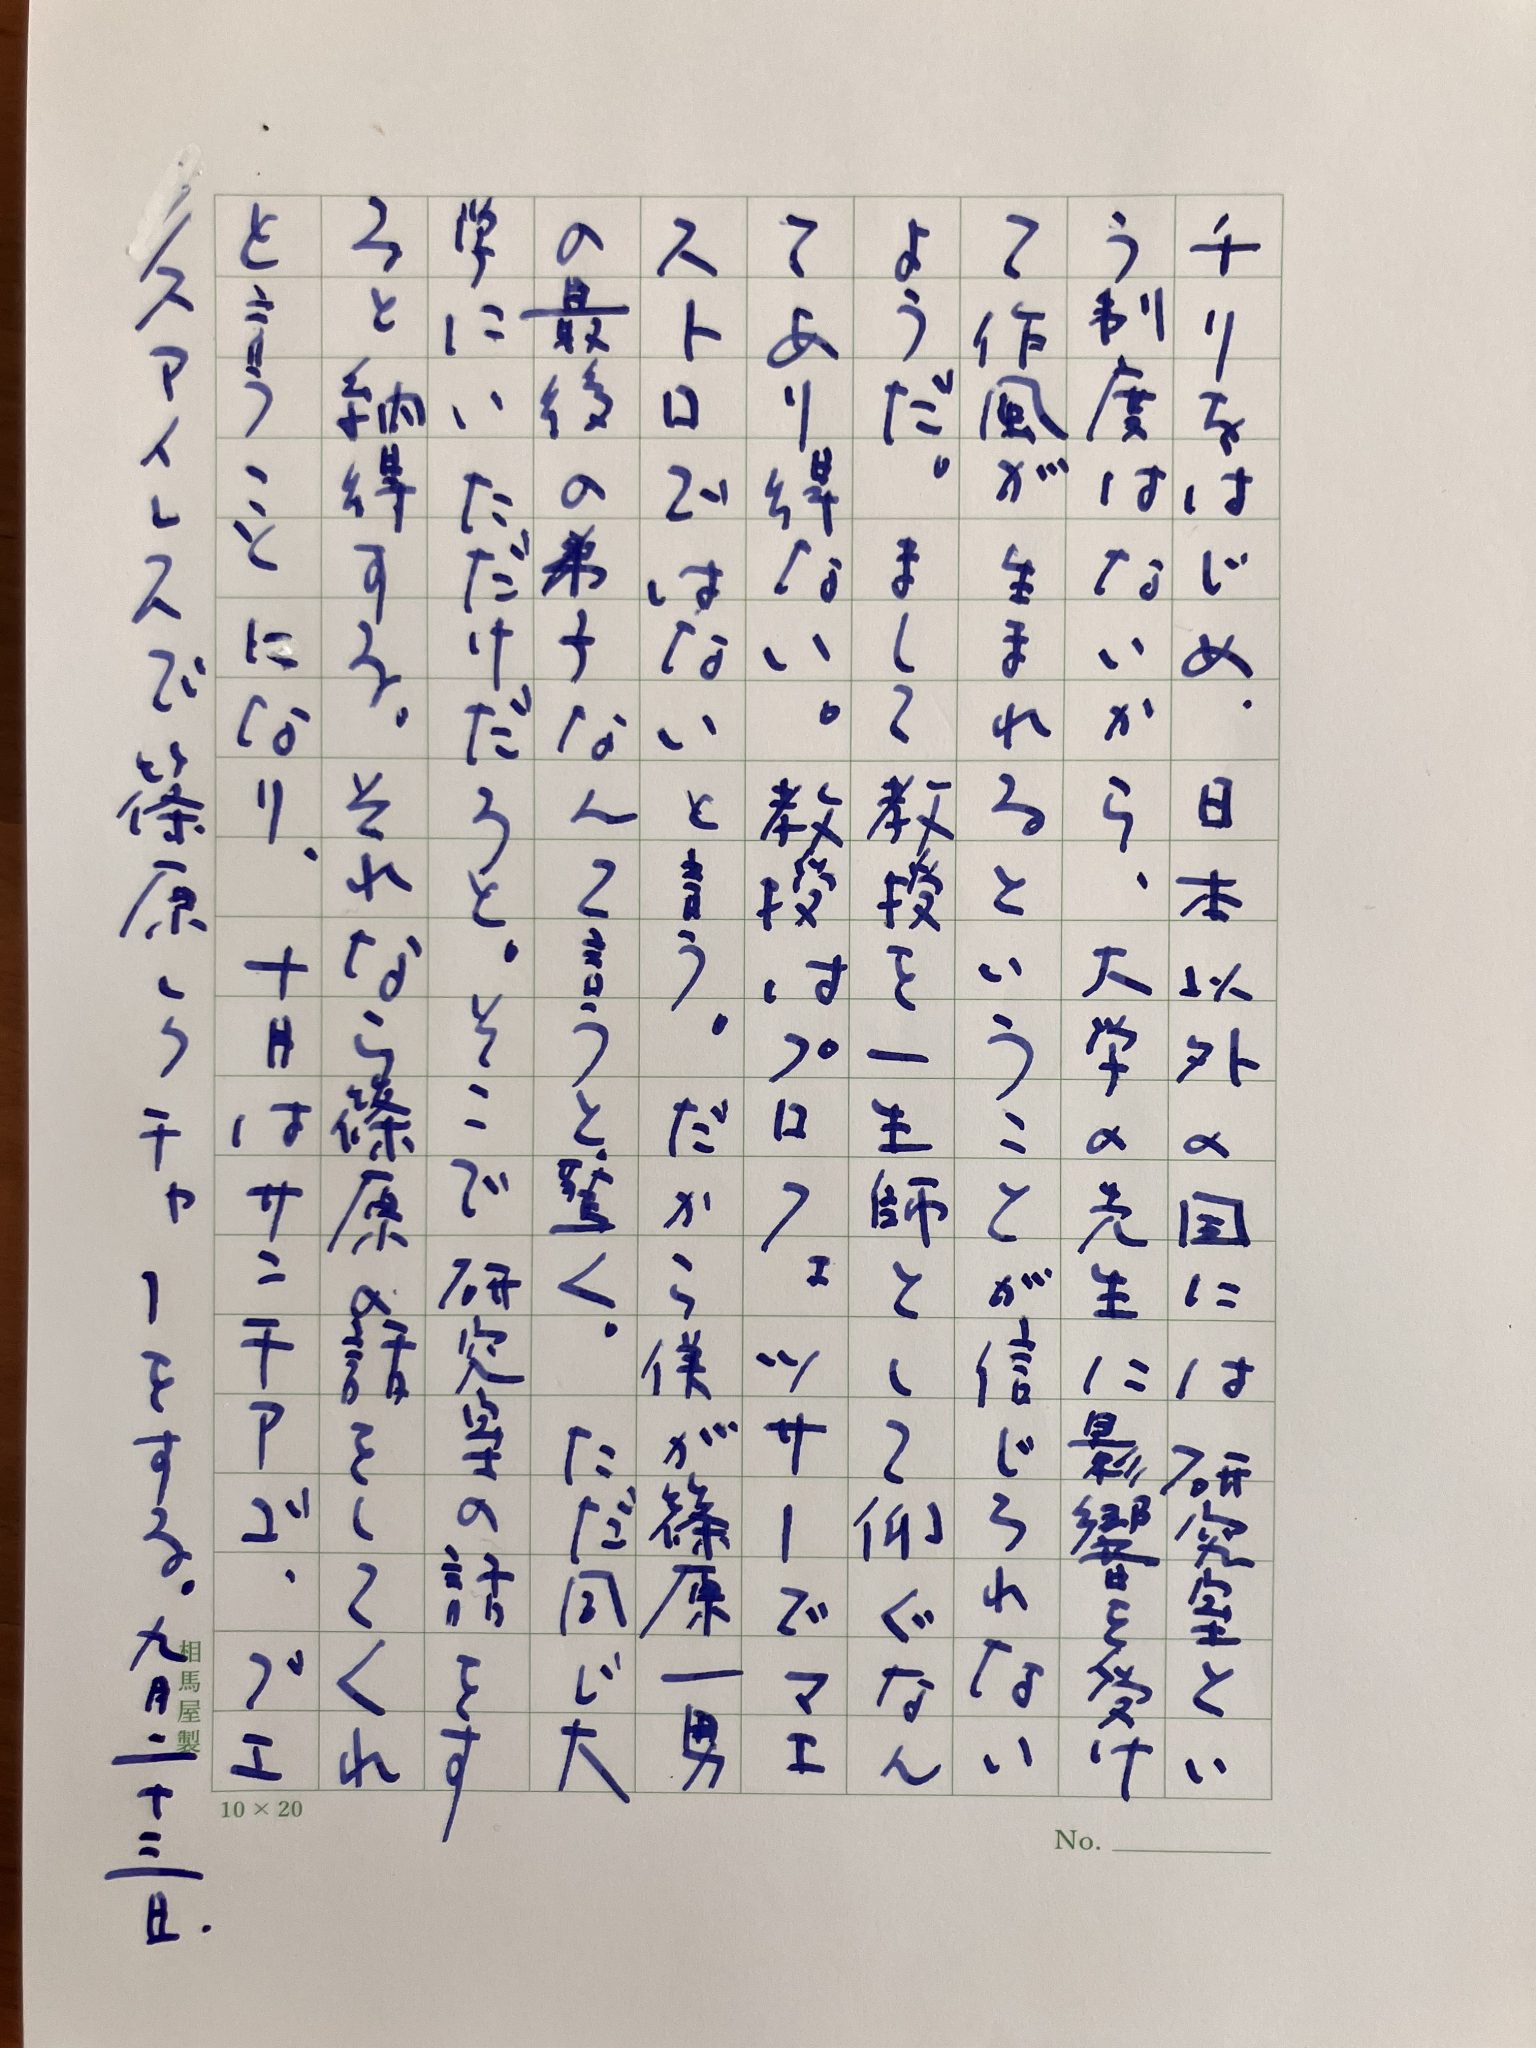 チリをはじめ、日本以外の国には研究室とい
う制度はないから、大学の先生に影響を受け
て作風が生まれるということが信じられない
ようだ。まして教授を一生師として仰ぐなん
てあり得ない。教授はプロフェッサーでマエ
ストロではないと言う。だから僕が篠原一男
の最後の弟子なんて言うと、驚く。ただ同じ大
学にいただけだろと。そこで研究室の話をす
ると納得する。それなら篠原の講をしてくれ
と言うことになり、十月はサンチアゴ、ブエ
ノスアイレスで篠原レクチャーをする。九月二十三日.
相馬屋製
10×20
No.